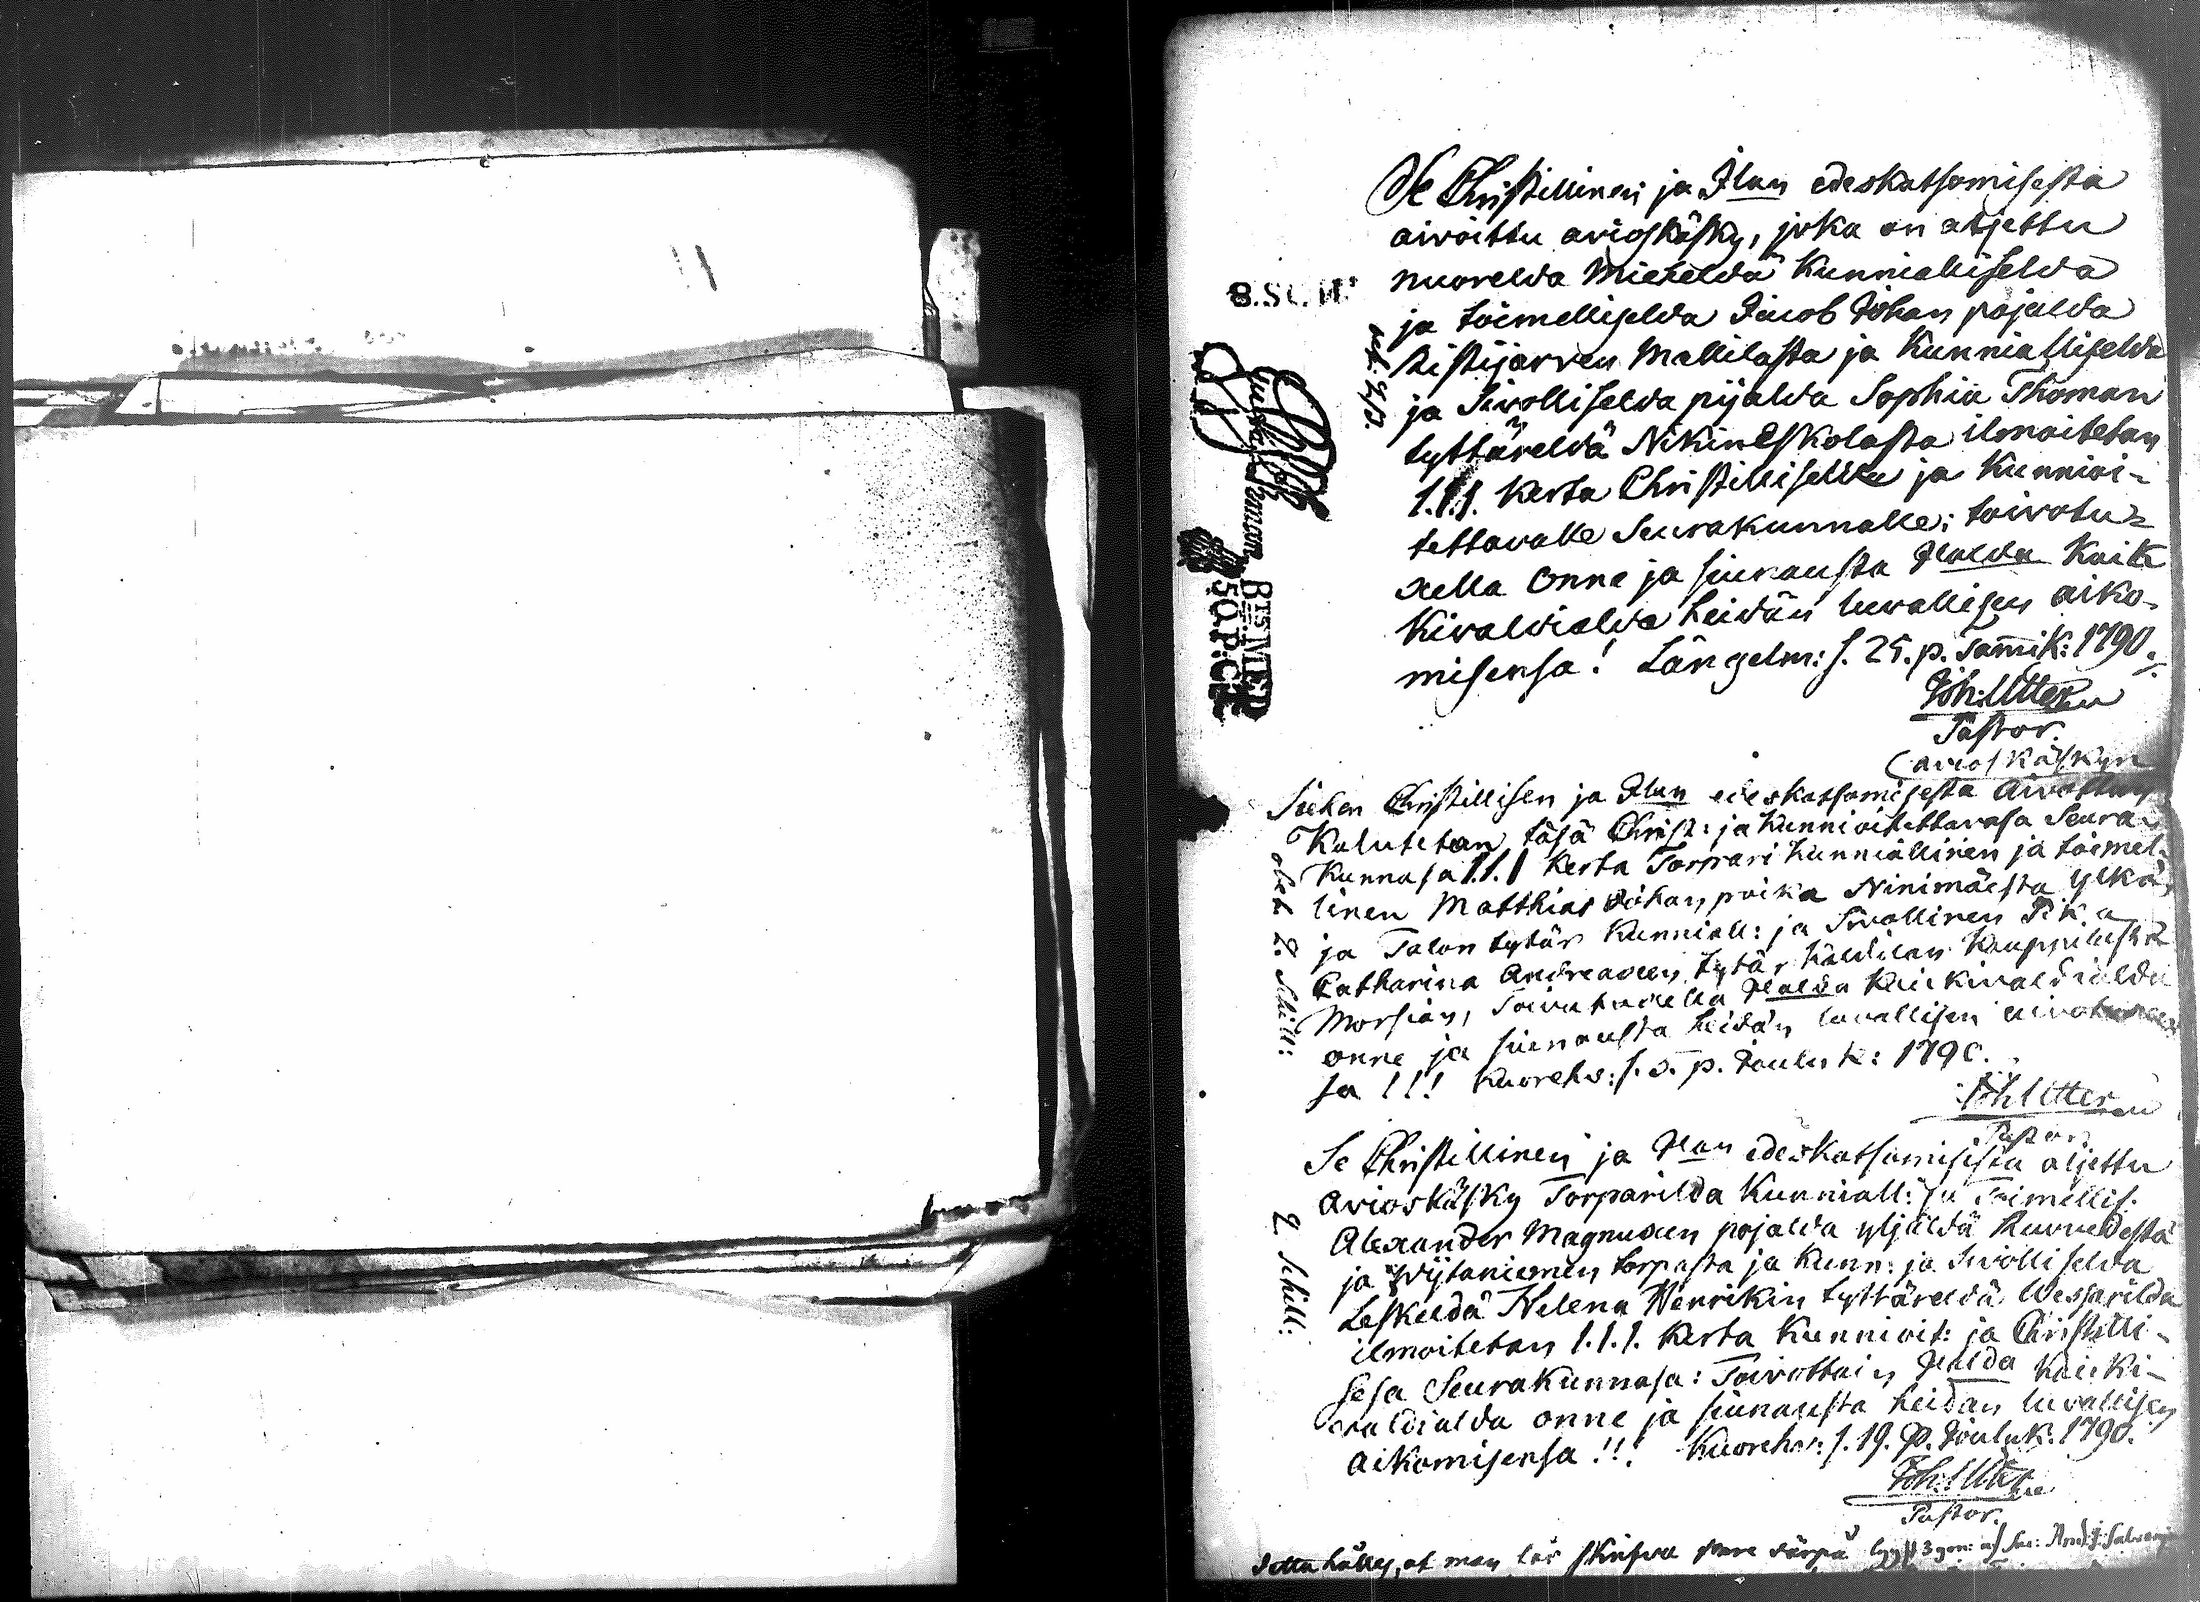 Se Christillinen ja Jlan edeskatsomisesta
aivoittu avioskäsky, joka on aljettu
nuorelda Mieheldä Kunnialliselda
ja toimelliselda Jacob Johan pojalda
Mallilasta ja Kunnialliselda
ja Sivolliselda pijalda Sophia Thoman
tyttäreldä Nikin Eskolasta ilmoitetan
1.1.1. Kerta Christilliselle ja Kunnioi-
tettavalle Seurakunnalle; toivotu-
xella Onne ja siunausta Jlalda Kaik
Kivaldialda heidän luvallisen aiko-
misensa! Längelm: s. 25. p. Tamik: 1790.
Joh: Utter
Pastor.
8.S.C.M:
BTS MED
50.P:CT
(avioskäskyn
Sichen Christillisen ja Jlan edeskatsomisesta Aivottun
Kulutetan täsä Christ: ja Kunnioitettavasa Seura-
Kunnasa 1.1.1 Kerta Torpari Kunniallinen ja toimel-
linen Matthias Johan poika Ninimäesta Ylkä,
ja Talon tytär Kunniall: ja Sivollinen Pika
Catharina Andreaxen tytär Kauppilasta
Morsian, Toivotuxella Jlalda Kaickivaldialda
onne ja siunausta heidän luvallisen
sa !!! Kuoreh: s. 5. p. Jouluk: 1790.
Joh Utter
Pastor
2. Schill:
Se Christillinen ja Jlan edeskatsomisesta aljettu
Avioskäsky Torparilda Kunniall: ja Toimellis:
Alexander Magnuxen pojalda yljäldä Kuuvedestä
ja Wijtaniemen torpasta ja Kunn: ja Sivolliselda
Leskeldä Helena Henrikin tyttäreldä Wessarilda
ilmoitetan 1.1.1. Kerta Kunnioit: ja Christilli-
sesa Seurakunnasa: Toivottain Jlalda Kaicki-
valdialda onne ja siunausta heidän luvallisen
Aikomisensa !!! Kuoreh: s. 19. P. Jouluk. 1790.
Joh: Utter
Pastor.
2 Schill:
Detta hålles, at man lär skrifva